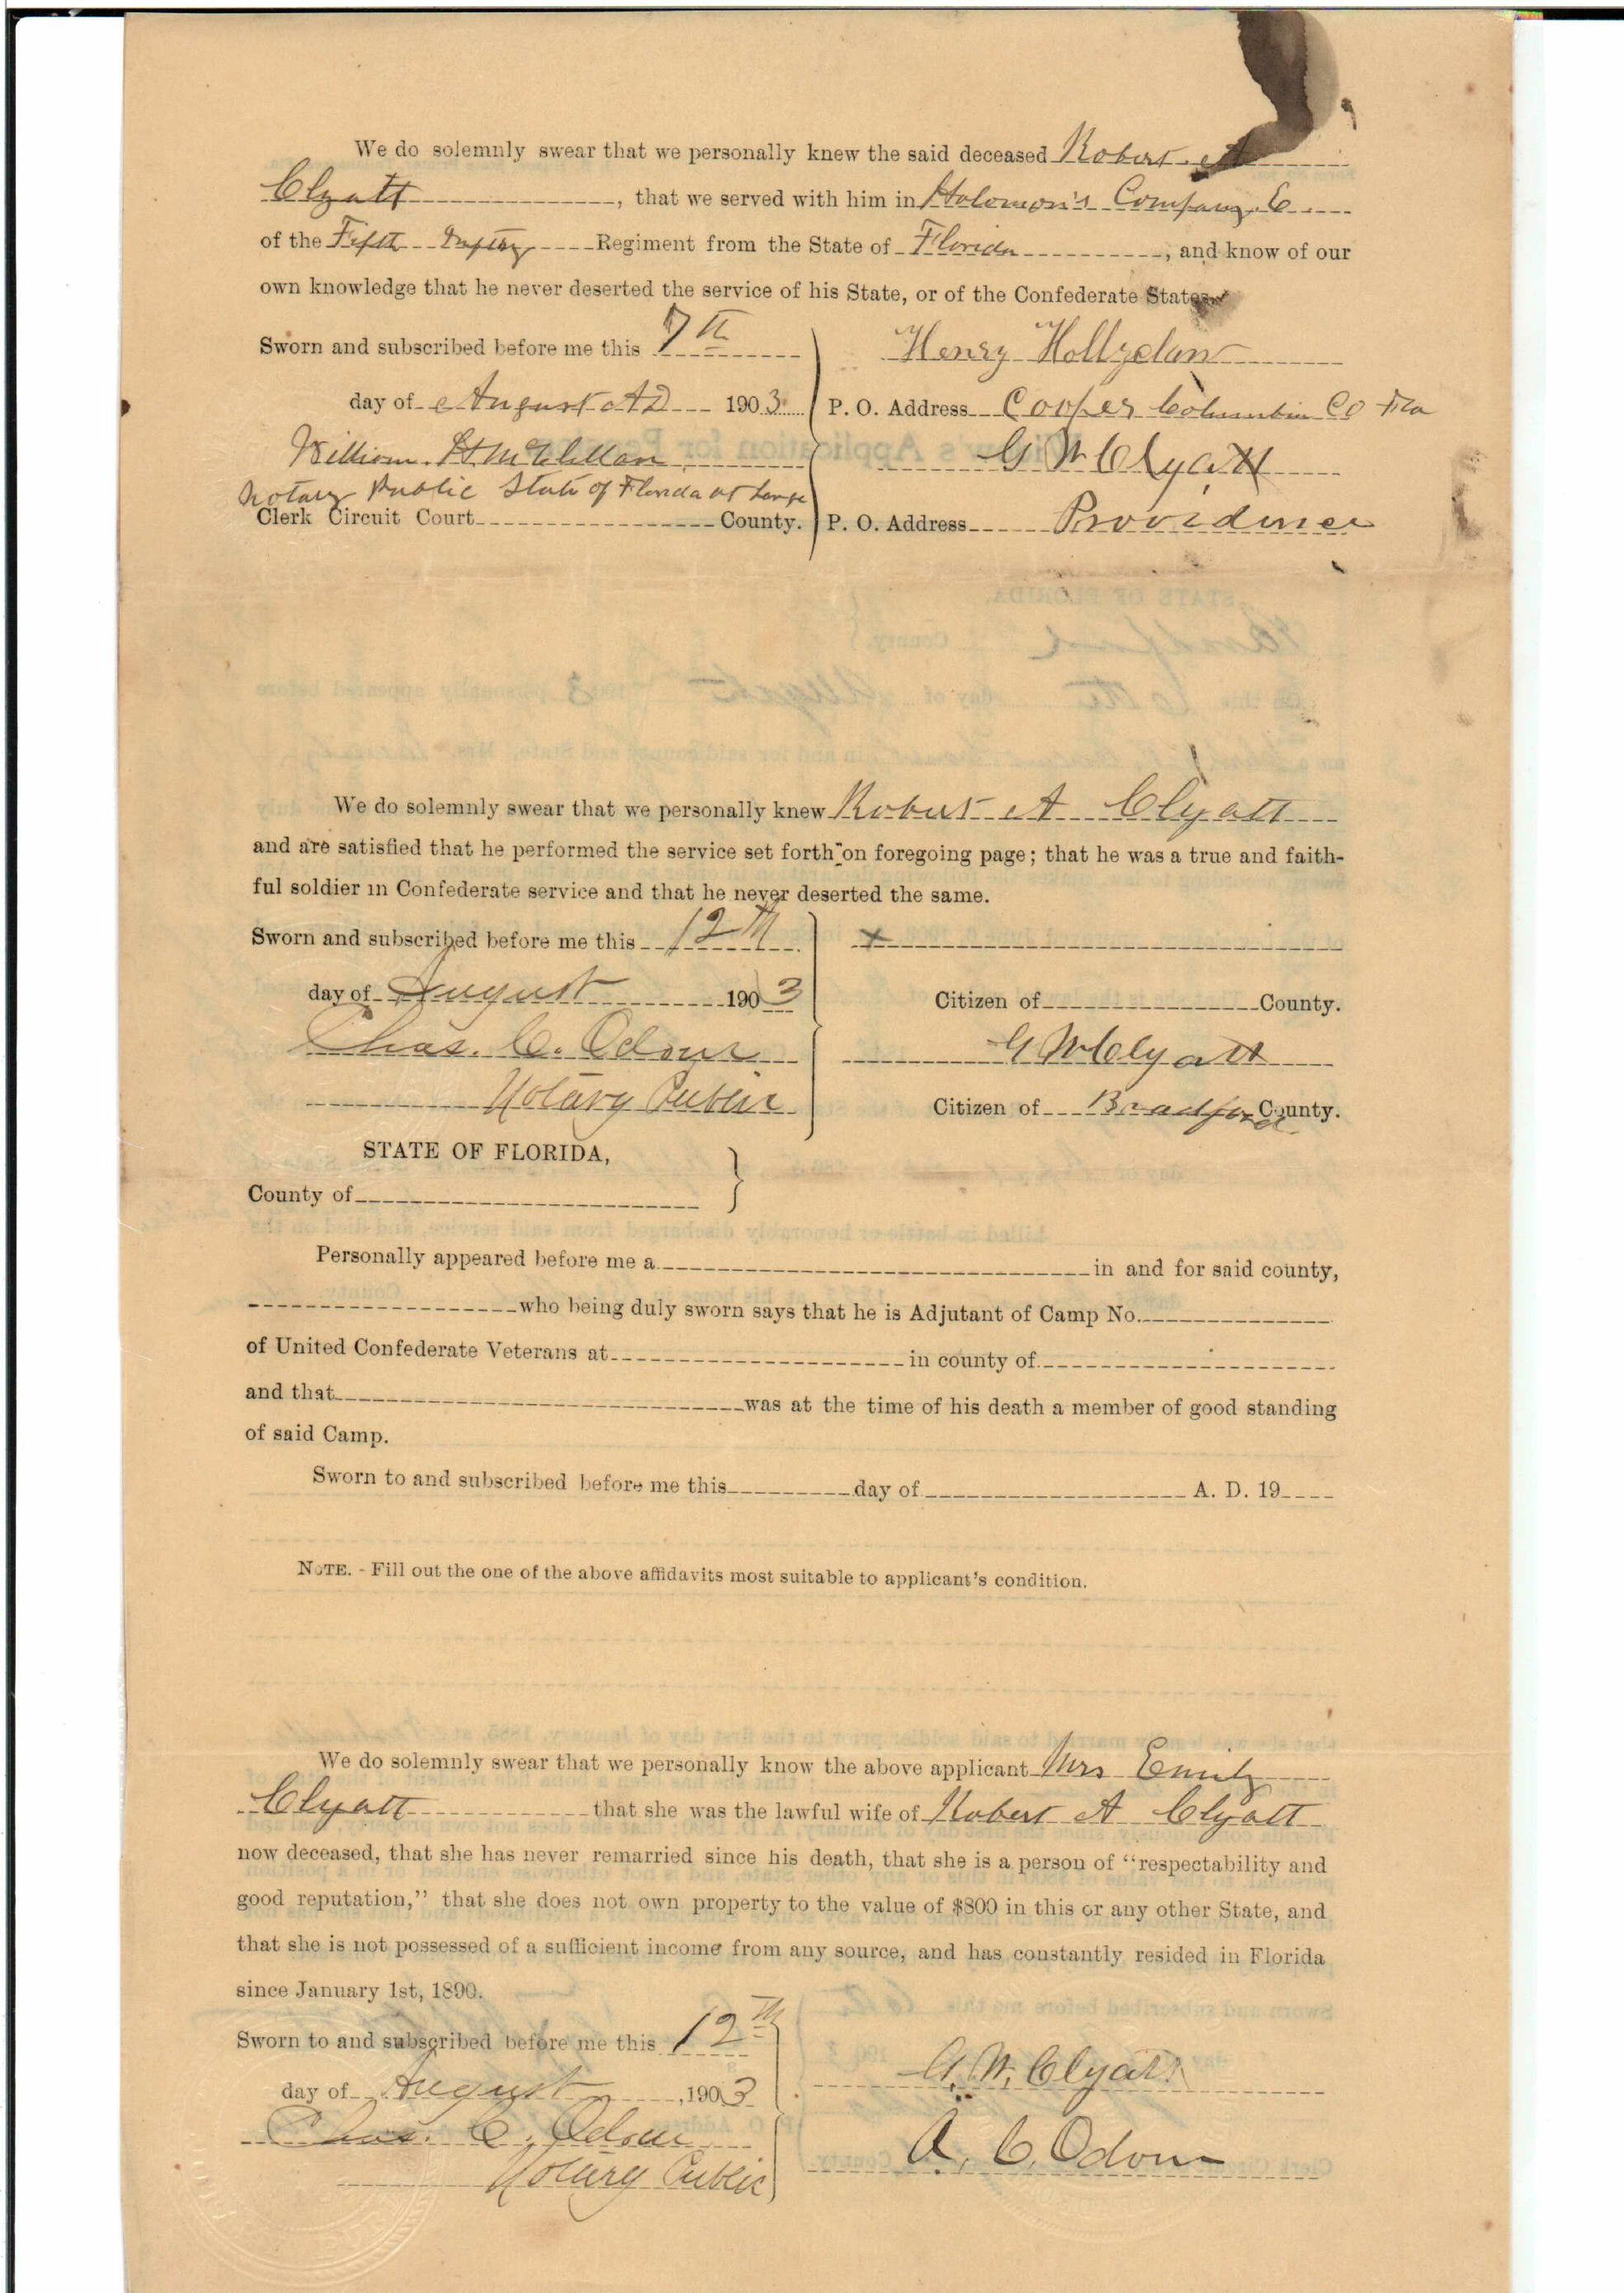 We do solemnly swear that we personally knew the said deceased Robert A
Clyatt, that we served with him in Holomon's Company E
of the Fifth Inftry Regiment from the State of Florida, and know of our
own knowledge that he never deserted the service of his State, or of the Confederate States
Sworn and subscribed before me this 7th
Henry Hollzclaw
day of August AD 1903
P. O. Address Cooper Columbia Co Fla
William H McClellan
G W Clyatt
Notary Public State of Florida at Large
Clerk Circuit Court County.
P. O. Address Providence
We do solemnly swear that we personally knew Robert A Clyatt
and are satisfied that he performed the service set forth on foregoing page; that he was a true and faith-
ful soldier in Confederate service and that he never deserted the same.
Sworn and subscribed before me this 12th
x
day of August 1903
Citizen of County.
Chas. C. Odom
G W Clyatt
Notary Public
Citizen of Bradford County.
STATE OF FLORIDA,
County of
Personally appeared before me a in and for said county,
who being duly sworn says that he is Adjutant of Camp No.
of United Confederate Veterans at in county of
and that was at the time of his death a member of good standing
of said Camp.
Sworn to and subscribed before me this day of A. D. 19
NOTE. - Fill out the one of the above affidavits most suitable to applicant's condition.
We do solemnly swear that we personally know the above applicant Mrs Emily
Clyatt that she was the lawful wife of Robert A Clyatt
now deceased, that she has never remarried since his death, that she is a person of "respectability and
good reputation," that she does not own property to the value of $800 in this or any other State, and
that she is not possessed of a sufficient income from any source, and has constantly resided in Florida
since January 1st, 1890.
Sworn to and subscribed before me this 12th
G. W. Clyatt
day of August, 1903
Chas. C. Odom
A. C. Odom
Notary Public